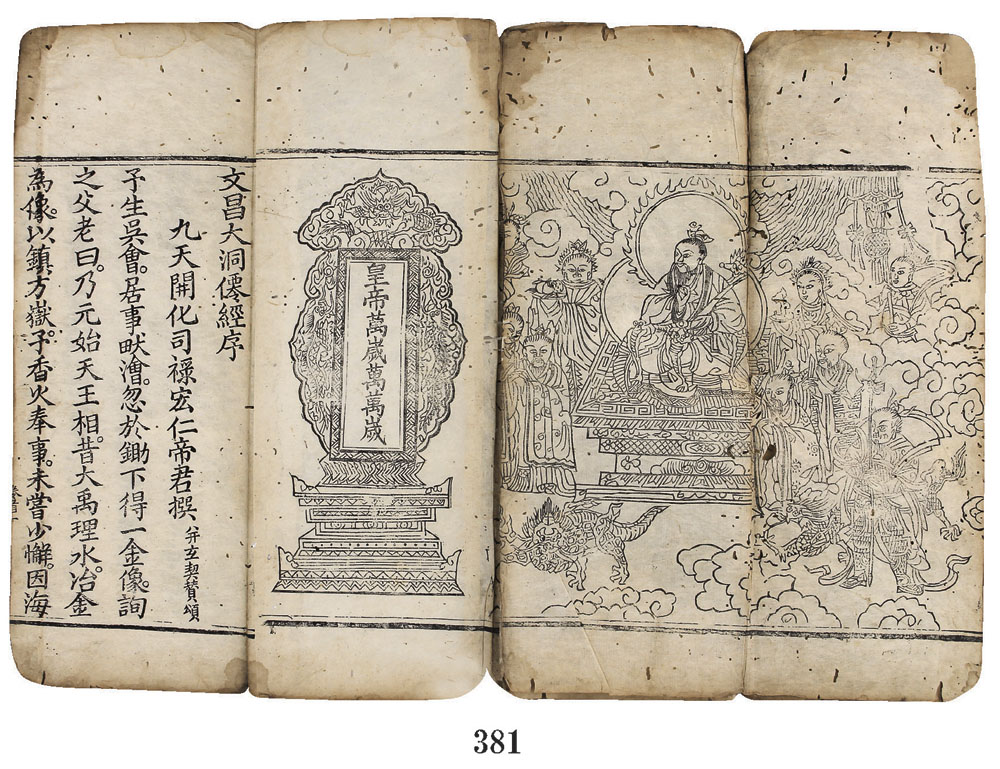 皇帝萬歲萬萬歲
文昌大洞僊經序
九天開化司祿宏仁帝君撰 并玄契贊頌
予生吳會。居事畎澮。忽於鋤下得一金像。詢
之父老曰。乃元始天王相。昔大禹理水。冶金
為像。以鎮方嶽。予香火奉事。未嘗少懈。因海
381